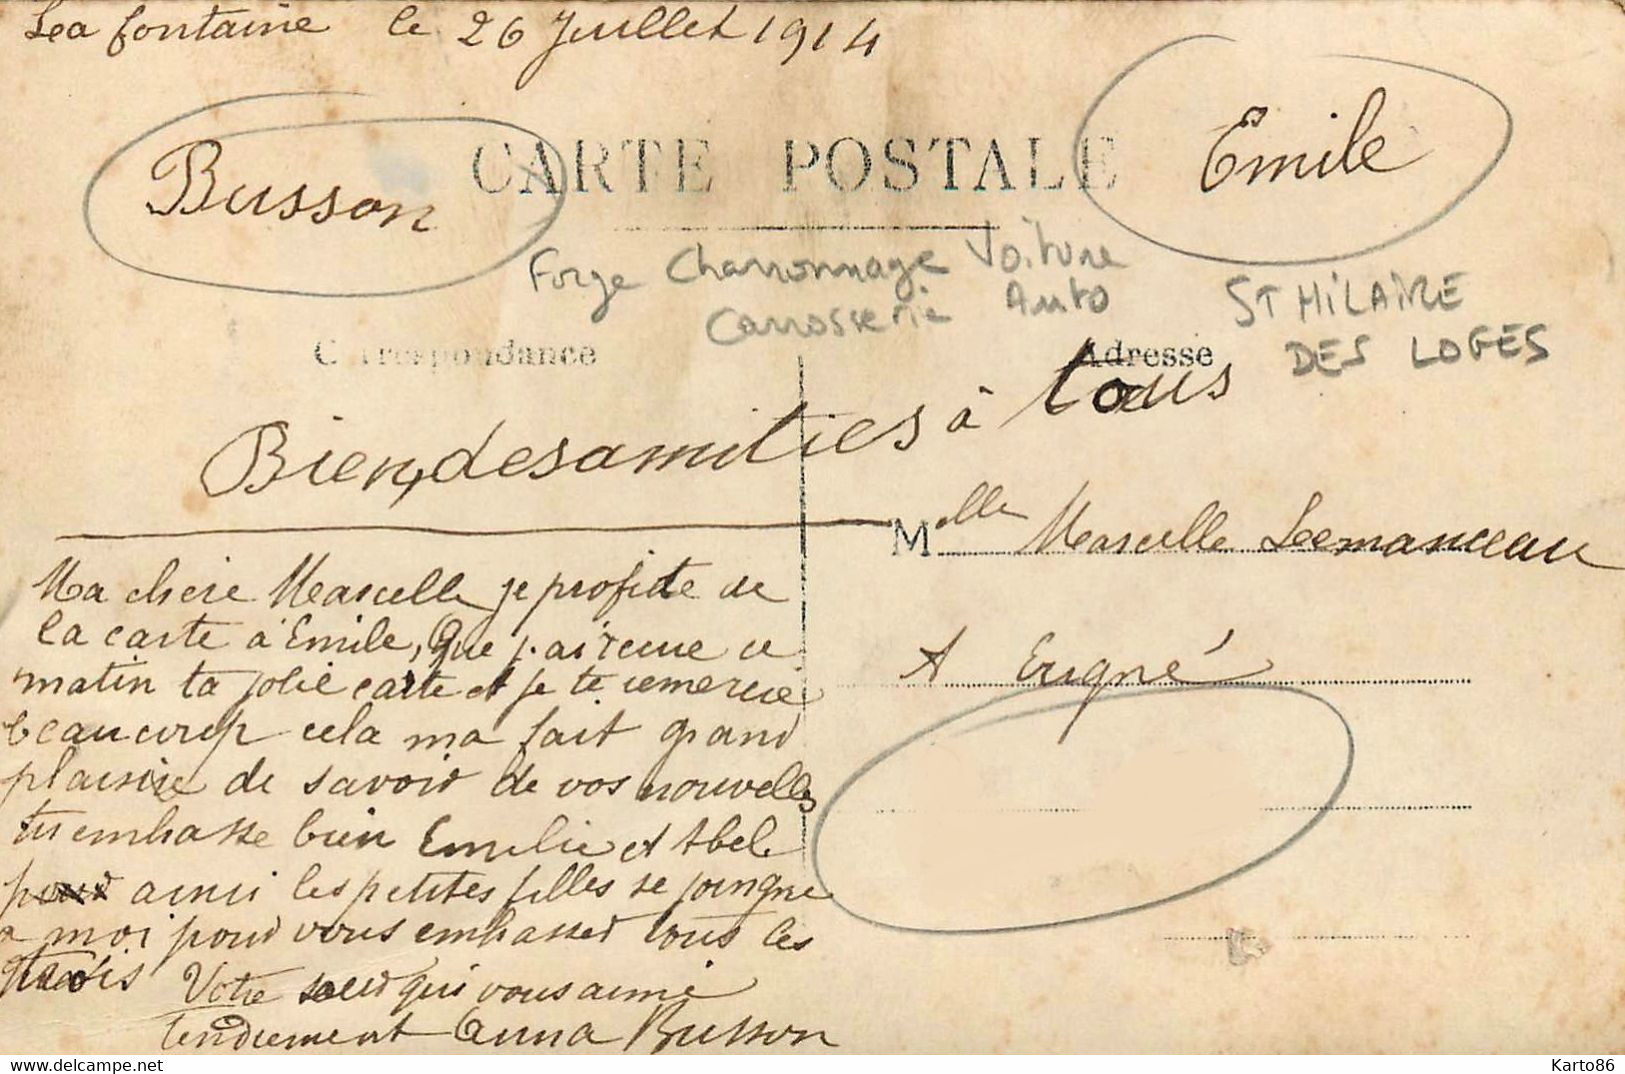 La fontaine le 26 Juillet 1914
Busson
CARTE POSTALE
Emile
Forge Charronnage Voiture
Carrosserie Auto
ST HILAIRE
DES LOGES
Correspondance
Adresse
Bien des amities à tous
Melle Marcelle Lemanceau
A Eugné
Ma chere Marcelle je profite de
la carte à Emile, Que j'ai reçue ce
matin ta jolie carte et je te remercie
beaucoup cela ma fait grand
plaisire de savoir de vos nouvelles
tu embasse bien Emelie et Abel
ainsi les petites filles se joingne
a moi pour vous embasser tous les
trois
Votre soeur qui vous aime
tendrement Anna Busson
Karto86